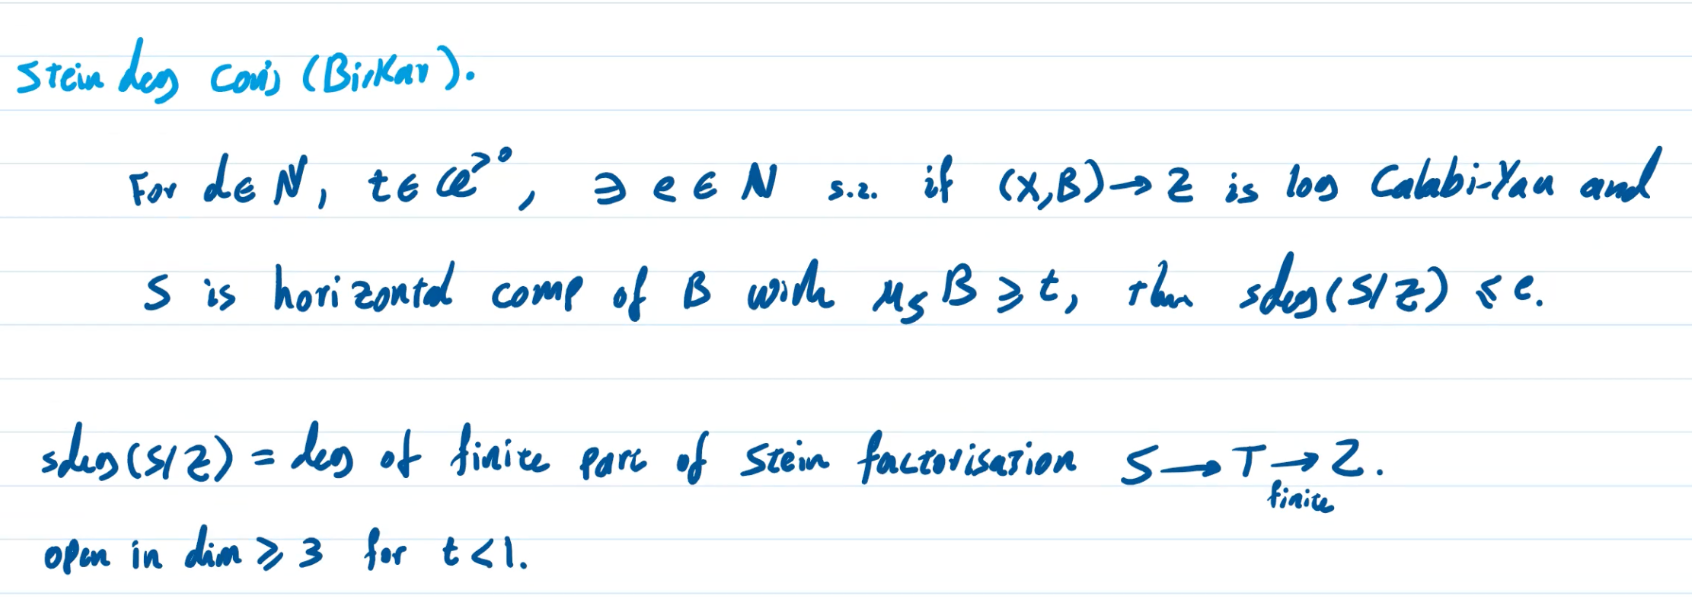 Stein deg conj (Birkar).
For d ∈ ℕ, t ∈ ℚ^{>0}, ∃ e ∈ ℕ s.t. if (X,B) → Z is log Calabi-Yau and
S is horizontal comp of B with μ_S B ⩾ t, then sdeg(S/Z) ⩽ e.
sdeg(S/Z) = deg of finite part of Stein factorisation S → T → Z.
finite
open in dim ⩾ 3 for t < 1.